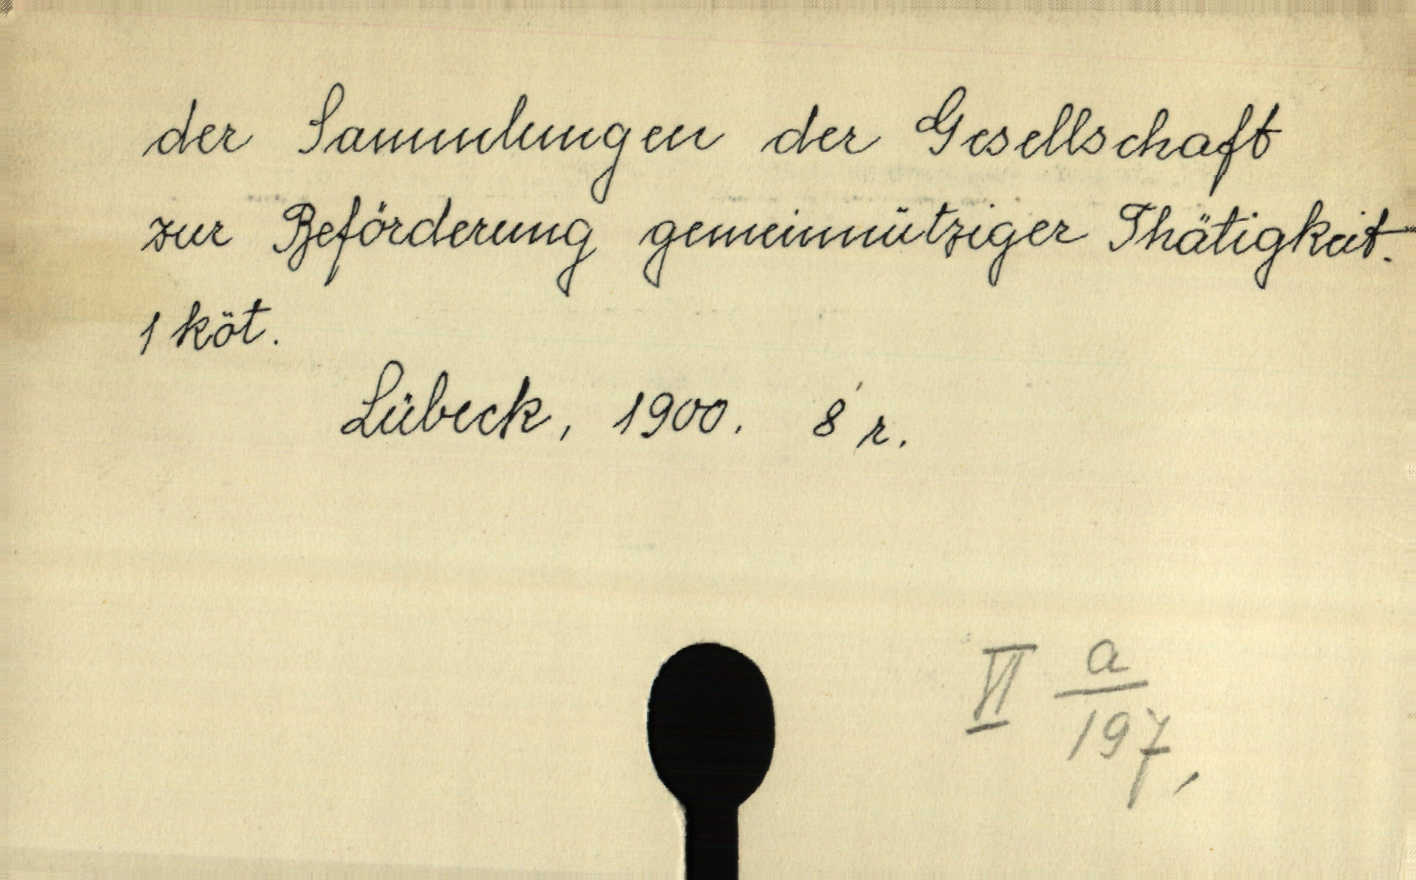 der Sammlungen der Gesellschaft
zur Beförderung gemeinnütziger Thätigkeit.
1 köt.
Lübeck, 1900. 8' r.
VI a/197,